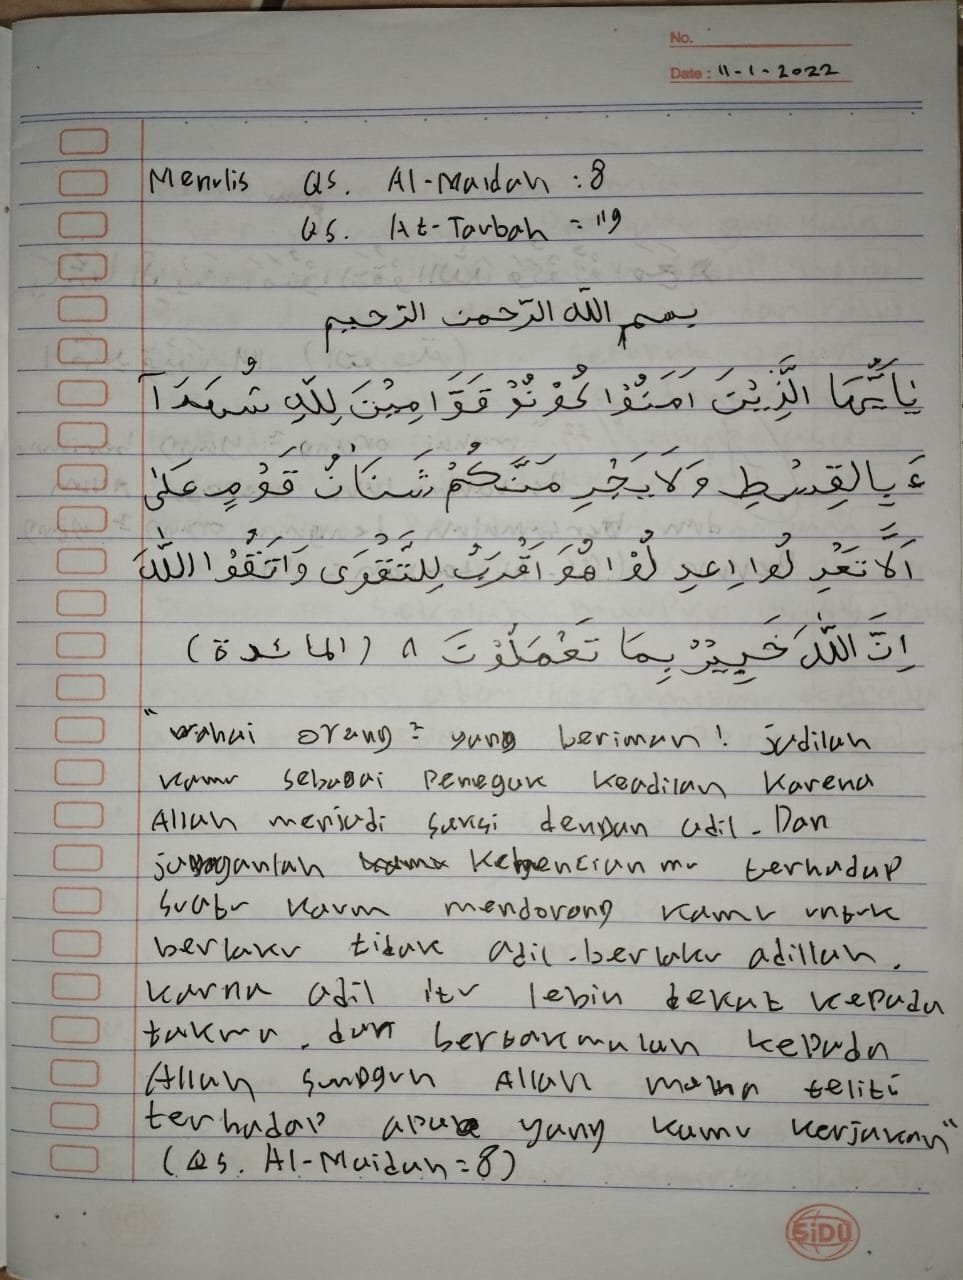 No.
Date : 11-1-2022
Menulis QS. Al-Maidah : 8
QS. At-Taubah = 119
بسم الله الرّحمن الرّحيم
يٰاَيُّهَا الَّذِيْنَ اٰمَنُوْا كُوْنُوْ قَوَّامِيْنَ لِلّٰهِ شُهَدَآ
ءَ بِالقِسْطِ وَلَا يَجْرِ مَنَّكُمْ شَنَاٰنُ قَوْمٍ عَلٰى
اَلَّا تَعْدِ لُوا اِعدِ لُوْا هُوَ اَقْرَبُ لِلتَّقْوَى وَاتَّقُوْا اللّٰهَ
اِنَّ اللّٰهَ خَبِيْرٌ بِمَا تَعْمَلُوْنَ ٨ (المائدة)
"wahai orang² yang beriman! jadilah
kamu sebagai Penegak keadilan karena
Allah menjadi saksi dengan adil. Dan
janganlah kebencian mu terhadap
suatu kaum mendorong kamu untuk
berlaku tidak adil. berlaku adillah.
karna adil itu lebih dekat kepada
takwa. dan bertakwalah kepada
Allah sungguh Allah maha teliti
terhadap apa yang kamu kerjakan"
(QS. Al-Maidah = 8)
SiDU